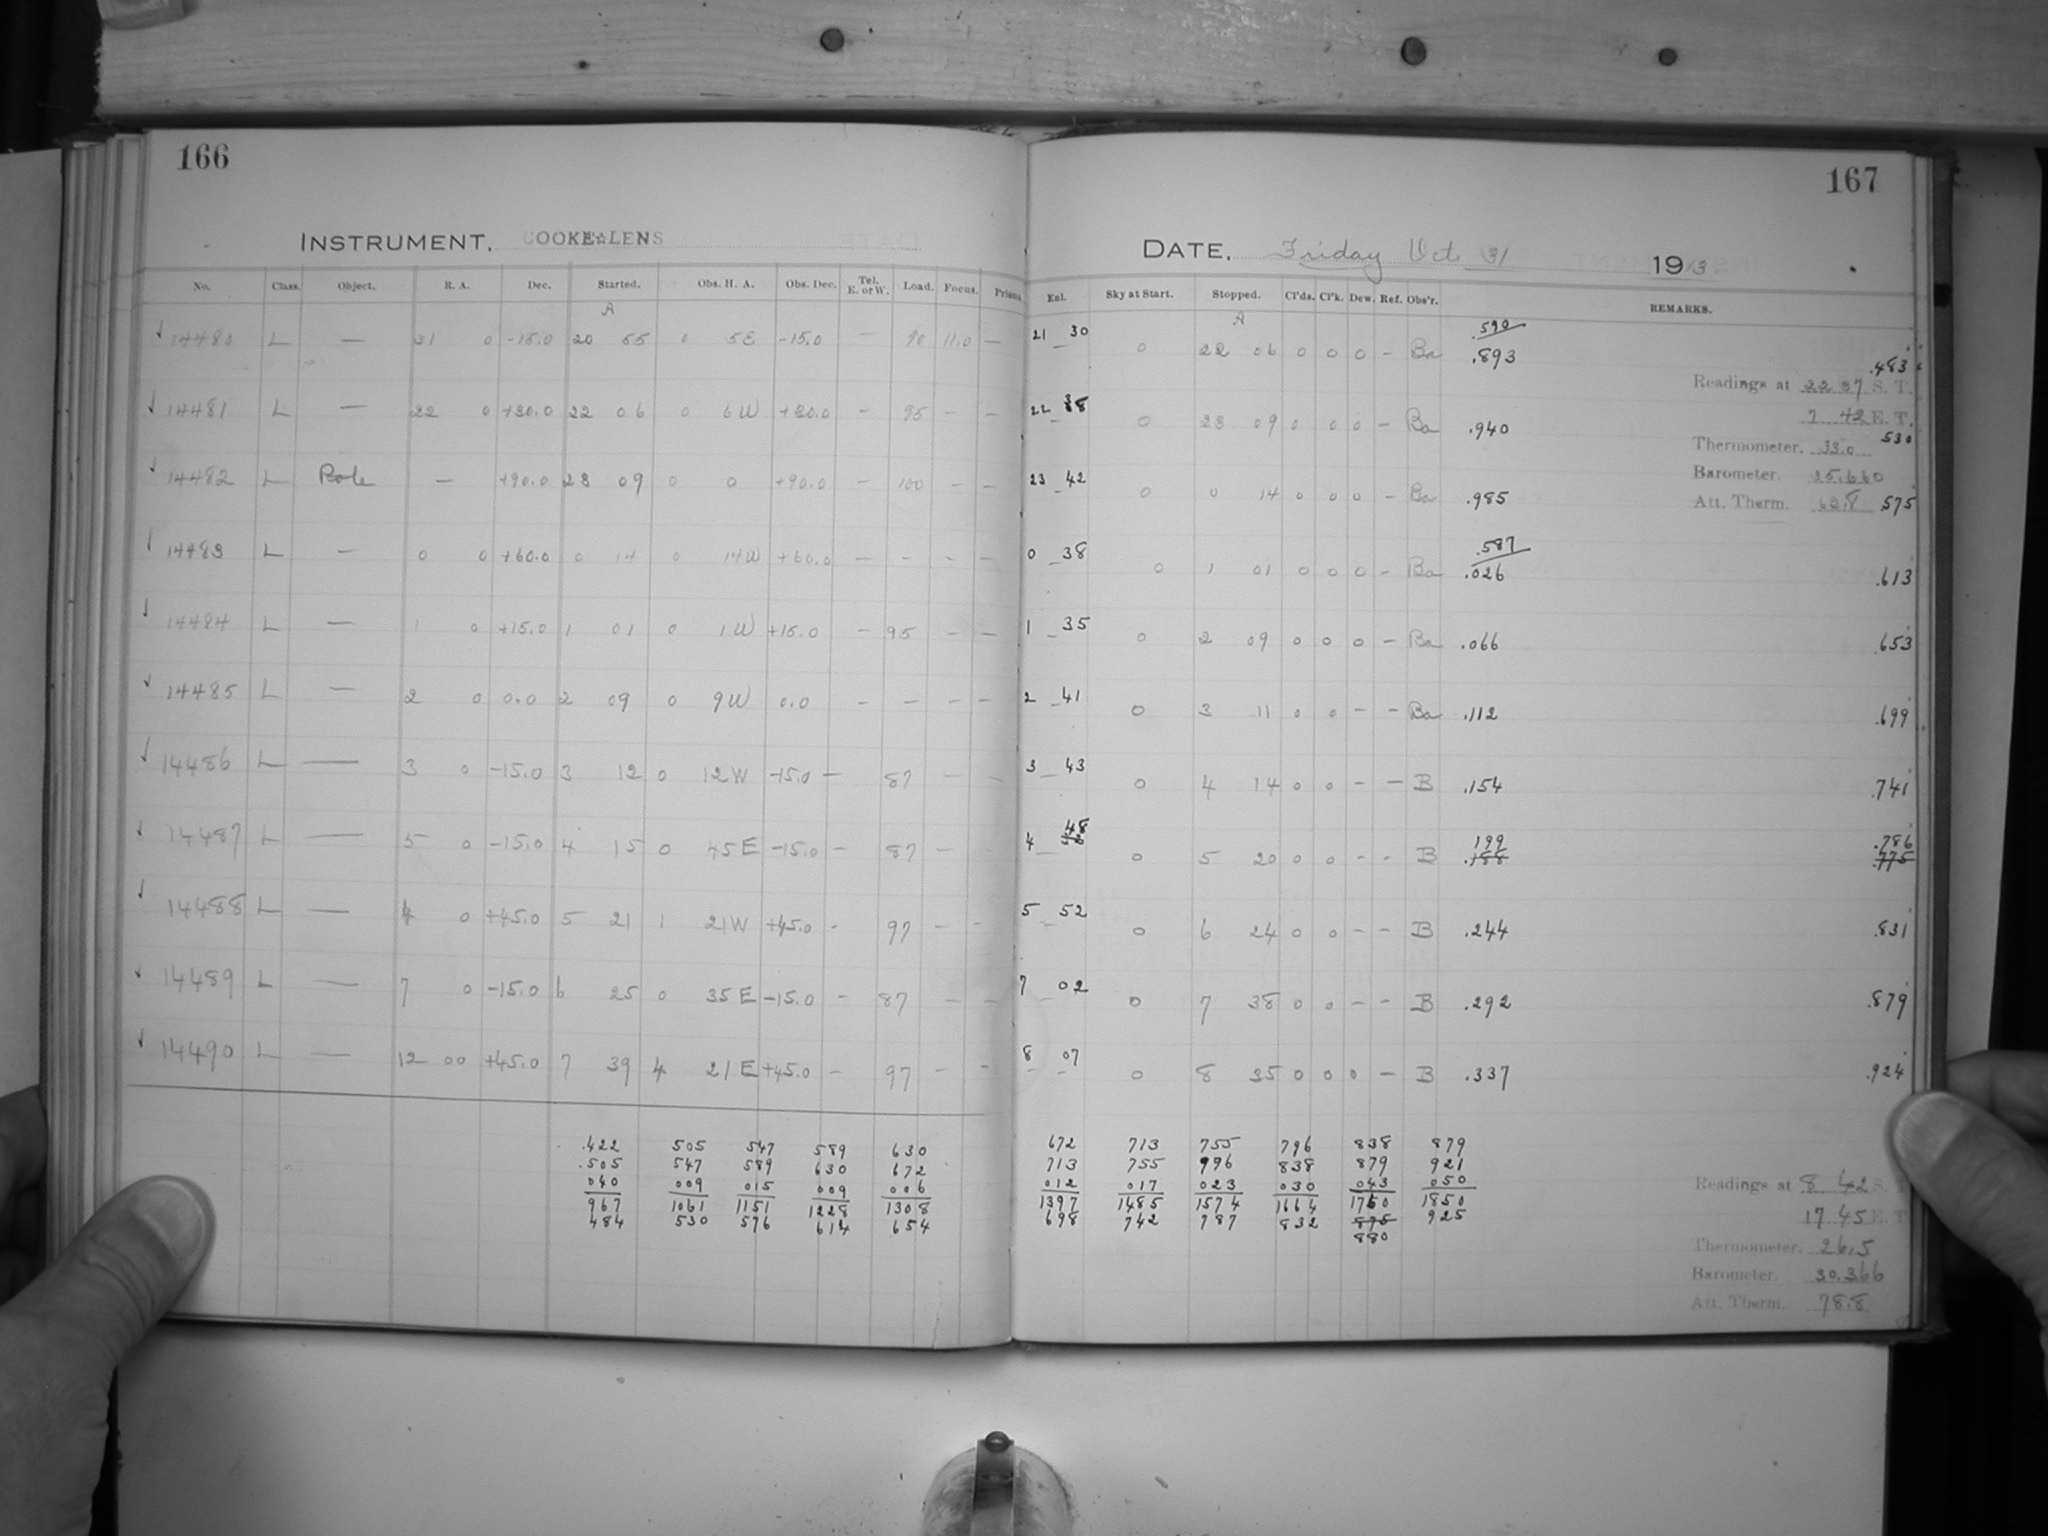 166
INSTRUMENT. COOKE☆LENS
No. Class. Object. R. A. Dec. Started. Obs. H. A. Obs. Dec. Tel. E. or W. Load. Focus. Prisms.
A
14480 L — 21 0 -15.0 20 55 0 5E -15.0 — 90 11.0 —
14481 L — 22 0 +30.0 22 06 0 6W +30.0 - 95 - -
14482 L Pole — +90.0 23 09 0 0 +90.0 - 100 - -
14483 L — 0 0 +60.0 0 14 0 14W +60.0 — - - -
14484 L — 1 0 +15.0 1 01 0 1W +15.0 - 95 - -
14485 L — 2 0 0.0 2 09 0 9W 0.0 - - - -
14486 L — 3 0 -15.0 3 12 0 12W -15.0 — 87 - -
14487 L — 5 0 -15.0 4 15 0 45E -15.0 - 87 - -
14488 L — 4 0 +45.0 5 21 1 21W +45.0 - 97 - -
14489 L — 7 0 -15.0 6 25 0 35E -15.0 - 87 - -
14490 L — 12 00 +45.0 7 39 4 21E +45.0 - 97 - -
.422 505 547 589 630
.505 547 589 630 672
040 009 015 009 006
967 1061 1151 1228 1308
484 530 576 614 654
167
DATE. Friday Oct 31 1913
Enl. Sky at Start. Stopped. Cl'ds. Cl'k. Dew. Ref. Obs'r. REMARKS.
A
.590
21 30 0 22 06 0 0 0 - Ba .893 .483
Readings at 22 37 S. T.
22 38 0 23 09 0 0 0 - Ba .940 7 42 E. T.
Thermometer. 33.0 530
Barometer.
23 42 0 0 14 0 0 0 - Ba .985 Att. Therm. 575
.587
0 38 0 1 01 0 0 0 - Ba .026 .613
1 35 0 2 09 0 0 0 - Ba .066 .653
2 41 0 3 11 0 0 - - Ba .112 .699
3 43 0 4 14 0 0 - - B .154 .741
48 199 .786
4 0 5 20 0 0 - - B .188 .775
5 52 0 6 24 0 0 - - B .244 .831
7 02 0 7 38 0 0 - - B .292 .879
8 07 0 8 35 0 0 0 - B .337 .924
672 713 755 796 838 879
713 755 796 838 879 921
012 017 023 030 043 050
1397 1485 1574 1664 1760 1850
698 742 787 832 875 925
880
Readings at 8 42 S. T
17 45 E. T
Thermometer. 26.5
Barometer. 30.366
Att. Therm. 78.8